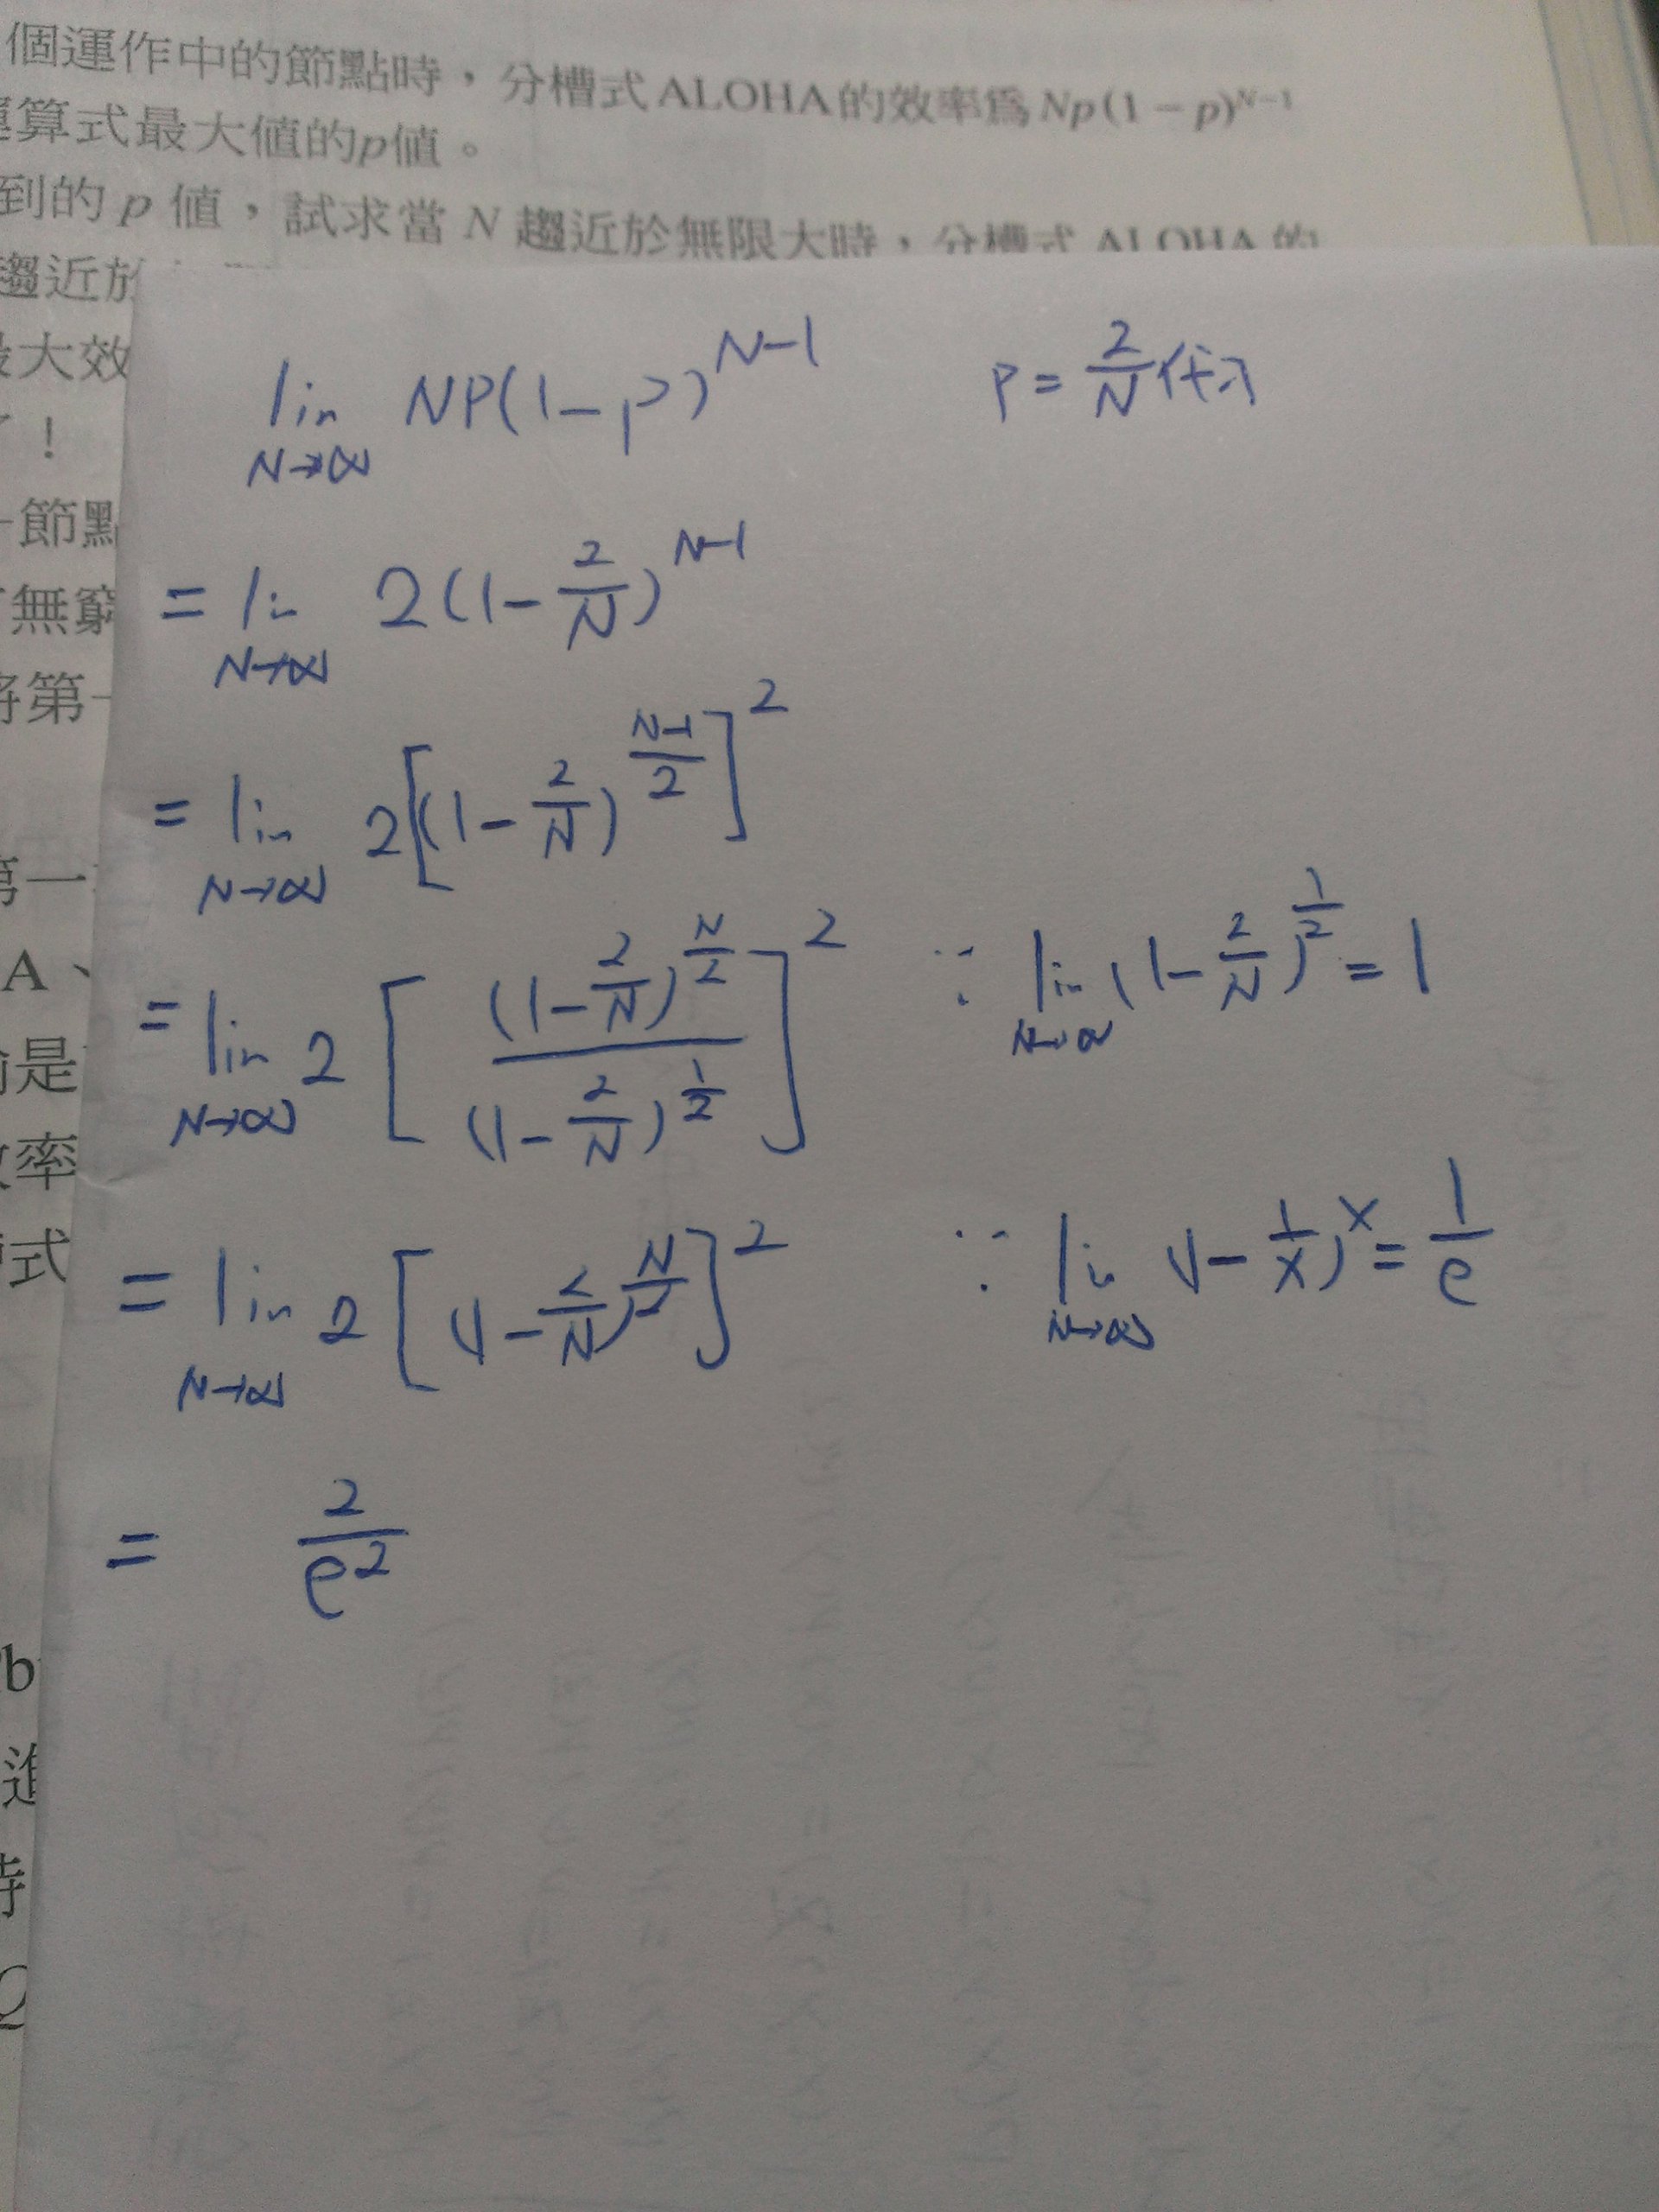 個運作中的節點時，分槽式ALOHA的效率為Np(1－p)^{N－1}
算式最大值的p值。
到的 p 值，試求當 N 趨近於無限大時，分槽式 ALOHA 的
趨近於
大效
！
節點
無窮
將第一
第一
A、
是
率
式
b
進
時
lim_{N→∞} NP(1－P)^{N-1} P = 2/N 代入
= lim_{N→∞} 2(1－2/N)^{N-1}
= lim_{N→∞} 2[(1－2/N)^{(N-1)/2}]^2
= lim_{N→∞} 2[(1－2/N)^{N/2} / (1－2/N)^{1/2}]^2 ∵ lim_{N→∞}(1－2/N)^{1/2} = 1
= lim_{N→∞} 2[(1－2/N)^{N/2}]^2 ∵ lim_{N→∞}(1－1/x)^x = 1/e
= 2/e^2